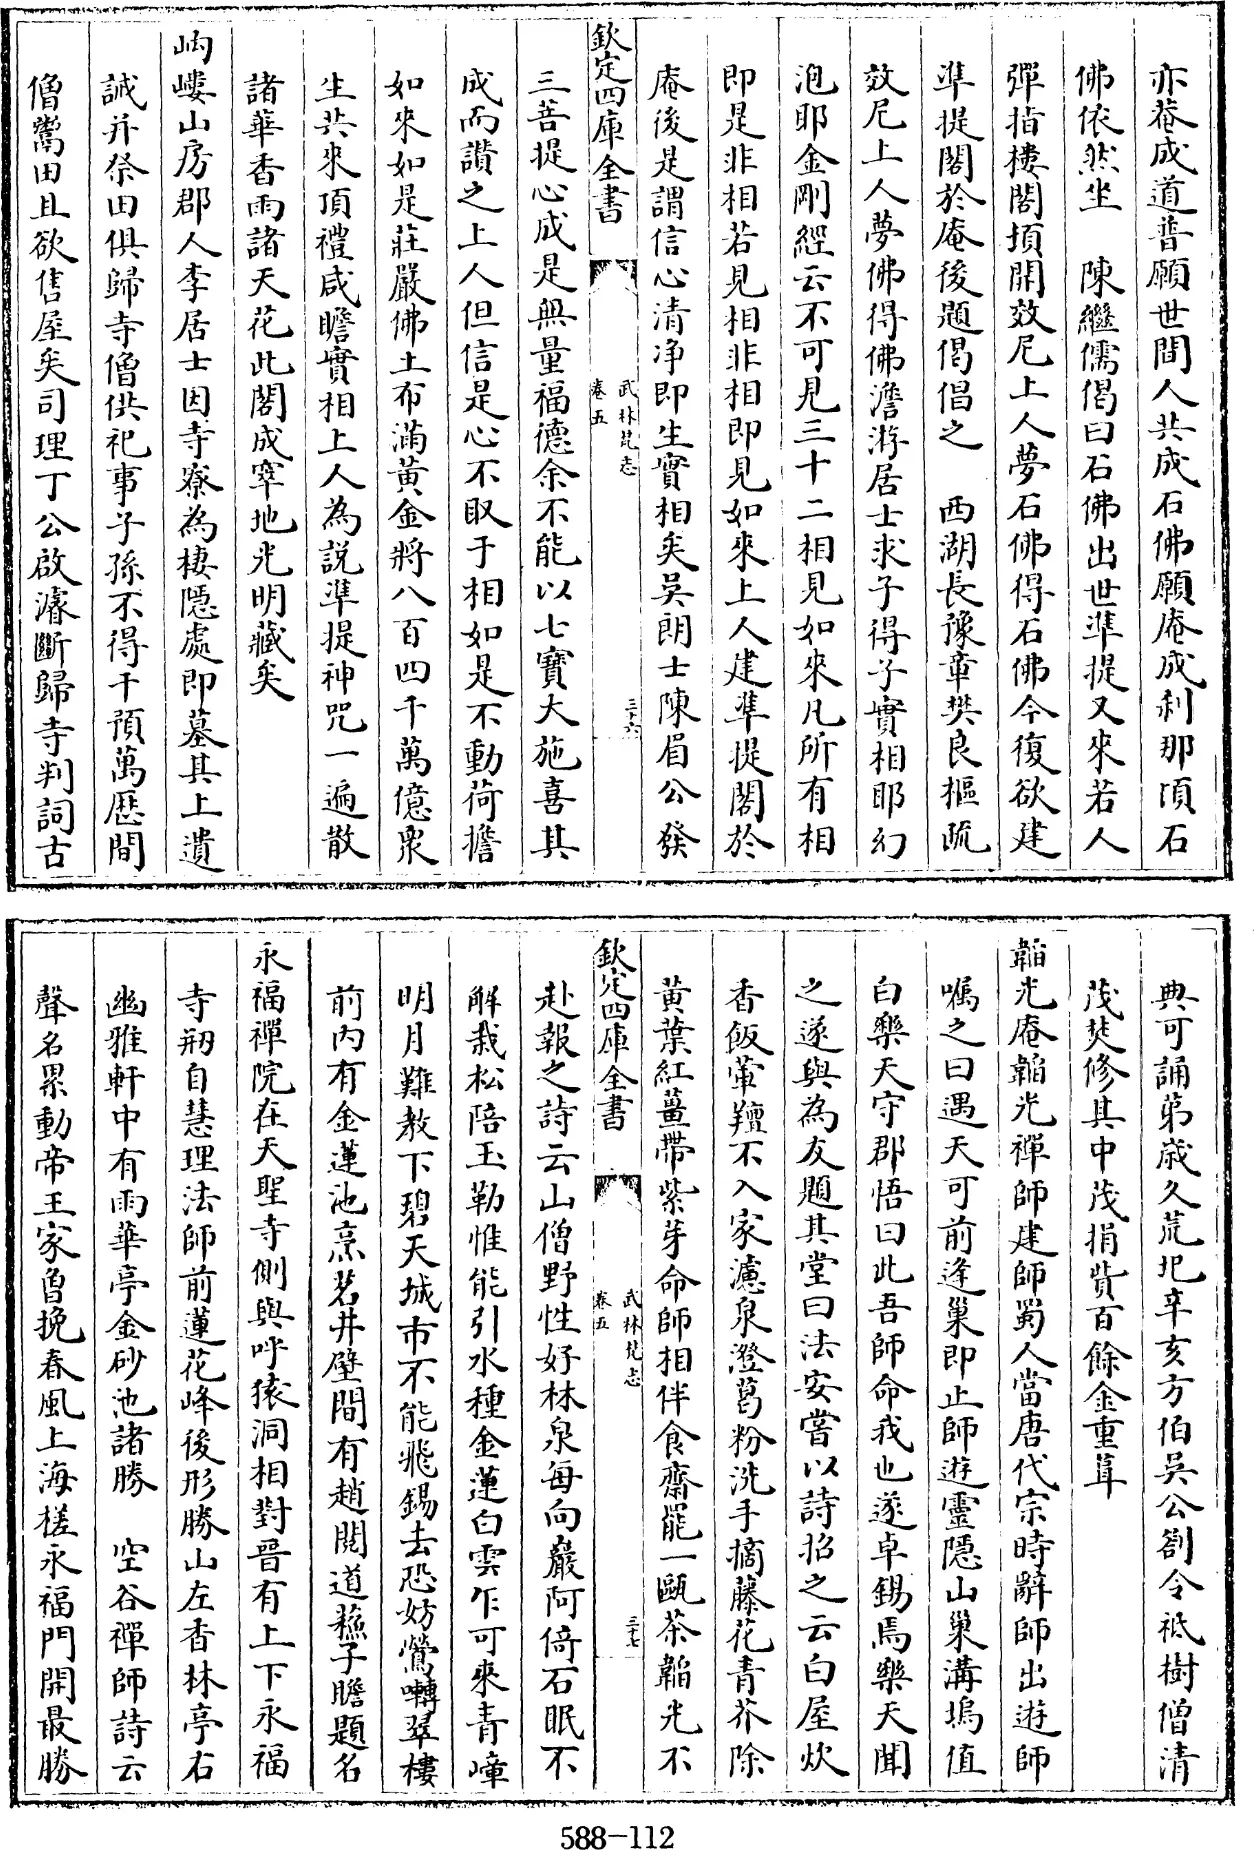 亦菴成道普願世間人共成石佛願庵成刹那頃石
佛依然坐　陳繼儒偈曰石佛出世準提又來若人
彈指樓閣頓開效尼上人夢石佛得石佛今復欲建
準提閣於庵後題偈倡之　西湖長豫章樊良樞疏
效尼上人夢佛得佛澹游居士求子得子實相耶幻
泡耶金剛經云不可見三十二相見如來凡所有相
即是非相若見相非相即見如來上人建準提閣於
庵後是謂信心清淨即生實相矣吳朗士陳眉公發
欽定四庫全書　武林梵志　卷五　三十六
三菩提心成是無量福德余不能以七寶大施喜其
成而讚之上人但信是心不取于相如是不動荷擔
如來如是莊嚴佛土布滿黃金將八百四千萬億衆
生共來頂禮咸瞻實相上人為説準提神咒一遍散
諸華香雨諸天花此閣成窣地光明藏矣
岣嶁山房郡人李居士因寺寮為棲隱處即墓其上遺
誠并祭田俱歸寺僧供祀事子孫不得干預萬歷間
僧鬻田且欲售屋矣司理丁公啟濬斷歸寺判詞古
典可誦第歲久荒圯辛亥方伯吳公劄令祗樹僧清
茂焚修其中茂捐貲百餘金重葺
韜光庵韜光禪師建師蜀人當唐代宗時辭師出遊師
囑之曰遇天可前逢巢即止師遊靈隱山巢溝塢值
白樂天守郡悟曰此吾師命我也遂卓錫焉樂天聞
之遂與為友題其堂曰法安嘗以詩招之云白屋炊
香飯葷羶不入家濾泉澄葛粉洗手摘藤花青芥除
黃葉紅薑帶紫芽命師相伴食齋罷一甌茶韜光不
欽定四庫全書　武林梵志　卷五　三十七
赴報之詩云山僧野性好林泉每向巖阿倚石眠不
解栽松陪玉勒惟能引水種金蓮白雲乍可來青嶂
明月難教下碧天城市不能飛錫去恐妨鶯囀翠樓
前内有金蓮池烹茗井壁間有趙閱道蘇子瞻題名
永福禪院在天聖寺側與呼猿洞相對晉有上下永福
寺剏自慧理法師前蓮花峰後形勝山左香林亭右
幽雅軒中有雨華亭金砂池諸勝　空谷禪師詩云
聲名累動帝王家曾挽春風上海槎永福門開最勝
588-112